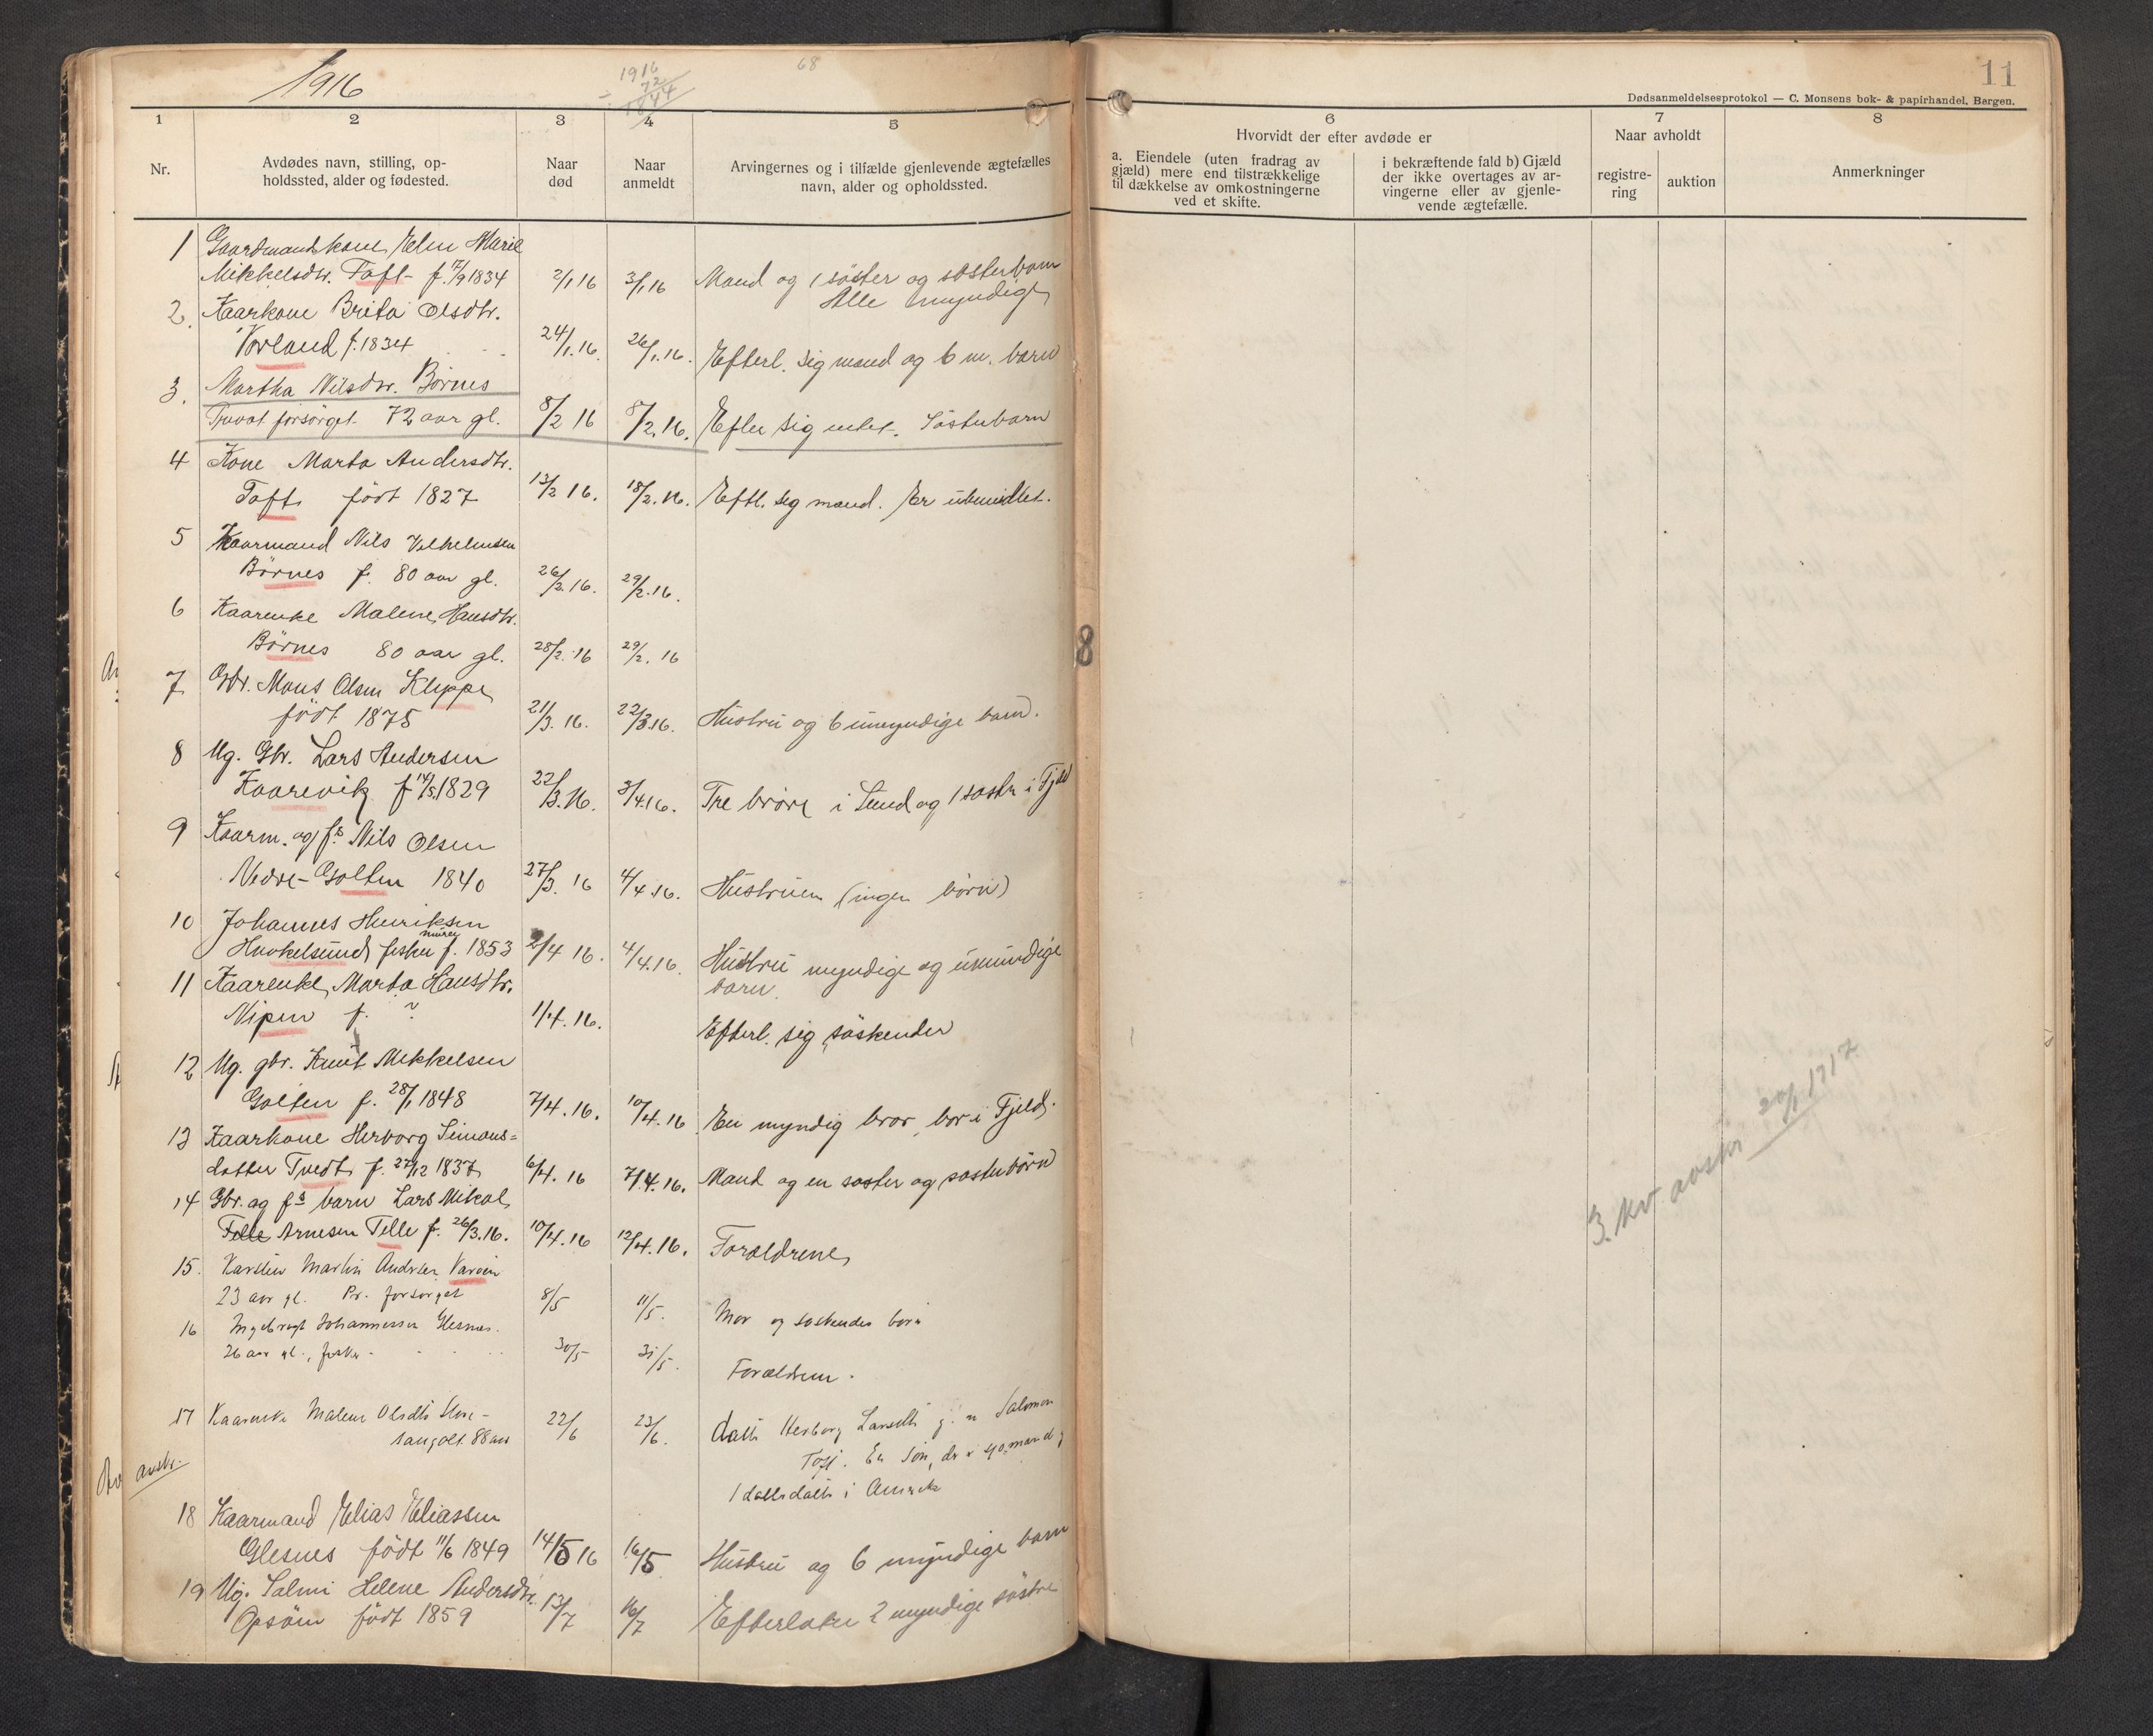 1916
1916
72
1844
68
11
Dødsanmeldelsesprotokol — C. Monsens bok- & papirhandel, Bergen.
1
2
3
4
5
6
7
8
Nr.
Avdødes navn, stilling, op-
holdssted, alder og fødested.
Naar
død
Naar
anmeldt
Arvingernes og i tilfælde gjenlevende ægtefælles
navn, alder og opholdssted.
Hvorvidt der efter avdøde er
a. Eiendele (uten fradrag av
gjæld) mere end tilstrækkelige
til dækkelse av omkostningerne
ved et skifte.
i bekræftende fald b) Gjæld
der ikke overtages av ar-
vingerne eller av gjenle-
vende ægtefælle.
Naar avholdt
registre-
ring
auktion
Anmerkninger
1 Gaardmandskone Elen Marie
Mikkelsdtr. Toft f. 17/9 1834 2/1 16 3/1 16 Mand og 1 søster og søsterbarn
Alle myndige
2. Kaarkone Brita Olsdtr.
Vorland f. 1834 24/1.16. 26/1.16. Efterl. sig mand og 6 m. barn
3. Martha Nilsdtr. Börnes
Privat forsörget 72 aar gl. 8/2 16 8/2.16. Efter sig intet. Søsterbarn
4 Kone Marta Andersdtr.
Toft født 1827 13/2 16. 18/2.16. Eftl. sig mand. Er ubemidlet.
5 Kaarmand Nils Vilhelmsen
Börnes f. 80 aar gl. 26/2.16. 29/2.16.
6 Kaarenke Malene Hansdtr.
Börnes 80 aar gl. 28/2.16 29/2.16
7 Gbr. Mons Olsen Kleppe
født 1875 21/3.16. 22/3.16. Hustru og 6 umyndige barn.
8 Ug. Gbr. Lars Andersen
Kaarevik f 14/5 1829 22/3.16. 3/4.16. Tre brøre i Sund og 1 søster i Fjeld
9 Kaarm. og fs Nils Olsen
Nedre-Golten 1840 27/3.16 4/4.16. Hustruen (ingen börn)
10 Johannes Henriksen
murer
Hvokelsund fisker f. 1853 2/4 16. 4/4.16. Hustru myndige og umyndige
barn.
11 Kaarenke Marta Hansdtr.
Nipen f. ? 1/4.16. Efterl. sig søskender
12 Ug. gbr. Knut Mikkelsen
Golten f. 28/1 1848 7/4.16. 10/4.16 En myndig bror, bor i Fjeld.
13 Kaarkone Herborg Simons=
datter Tvedt f. 27/12 1837 6/4.16 7/4.16. Mand og en søster og søsterbörn
14 Gbr. og fs barn Lars Mikal
Telle Arnesen Telle f. 26/3.16. 10/4.16 12/4.16. Forældrene
15. Karsten Martin Andrsen
23 aar gl. Pr. forsørget 8/5 11/5. Mor og søskendes börn
16 Ingebrigt Johannessen Glesnes.
26 aar gl., fisker 30/5 31/5. Forældrene.
17 Kaarenke Malene Olsdtr Store-
sangolt 88 aar 22/6 23/6. datter Herborg Larsdtr g. m Salomon
Toft. En søn, der er
1 dattersdatter i Amerika
avsltr.
18 Kaarmand Elias Eliassen
Glesnes født 11/6 1849 14/5 16 16/5 Hustru og 6 myndige barn
19 Ug. Salmi Helene Andersdtr.
Opsöm født 1859 13/7 16/7 Efterlater 2 myndige søstre
8
3. kv. 20/1 1917